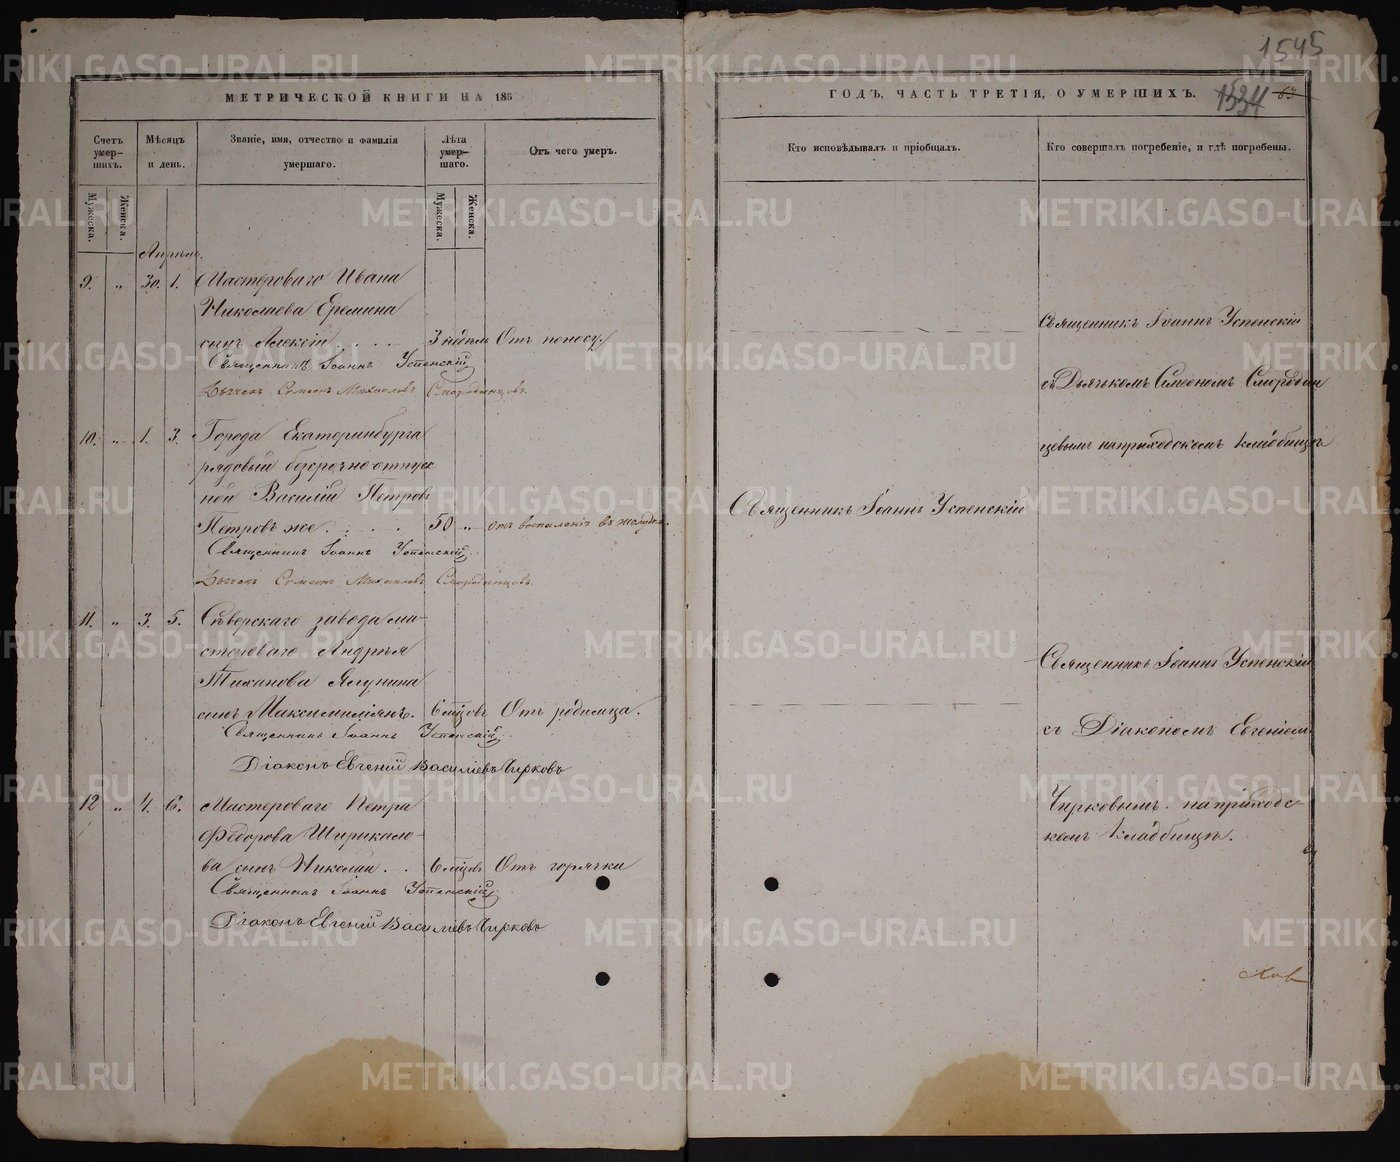 1545
МЕТРИЧЕСКОЙ КНИГИ НА 185
ГОДЪ, ЧАСТЬ ТРЕТІЯ, О УМЕРШИХЪ.
1534 63
Счетъ умер-шихъ.
Мѣсяцъ и день.
Званіе, имя, отчество и фамилія умершаго.
Лѣта умер-шаго.
Отъ чего умеръ.
Кто исповѣдывалъ и пріобщалъ.
Кто совершалъ погребеніе, и гдѣ погребены.
Мужеска.
Женска.
Мужеска.
Женска.
Апрѣль.
9. „ 30. 1. Мастероваго Ивана
Николаева Еремина
сынъ Алексій . . . . 3 недѣли Отъ поносу.
Священникъ Іоаннъ Успенскій
Дьячекъ Симеонъ Михаиловъ Смородинцовъ.
Священникъ Іоаннъ Успенскій
съ Дьячкомъ Симеономъ Смородин
цевымъ на приходскомъ кладбищѣ
10. „ 1. 3. Города Екатеринбурга
рядовый безсрочно отпуск
ной Василій Петровъ
Петровъ же . . . . . 50 „ отъ воспаленія въ желудкѣ.
Священникъ Іоаннъ Успенскій.
Дьячекъ Симеонъ Михаиловъ Смородинцовъ
Священникъ Іоаннъ Успенскій
11. „ 3. 5. Сѣверскаго завода ма-
стероваго Андрея
Тиханова Ялунина
сынъ Максимиліянъ. 6 мѣсцовъ Отъ родимца.
Священникъ Іоаннъ Успенскій.
Діаконъ Евгеній Василіевъ Чирковъ
Священникъ Іоаннъ Успенскій
съ Діакономъ Евгеніемъ
Чирковымъ на приходс-
комъ кладбищѣ.
12 „ 4. 6. Мастероваго Петра
Ѳедорова Ширикало-
ва сынъ Николай . . 6 мѣсцовъ Отъ горячки
Священникъ Іоаннъ Успенскій.
Діаконъ Евгеній Василіевъ Чирковъ
METRIKI.GASO-URAL.RU